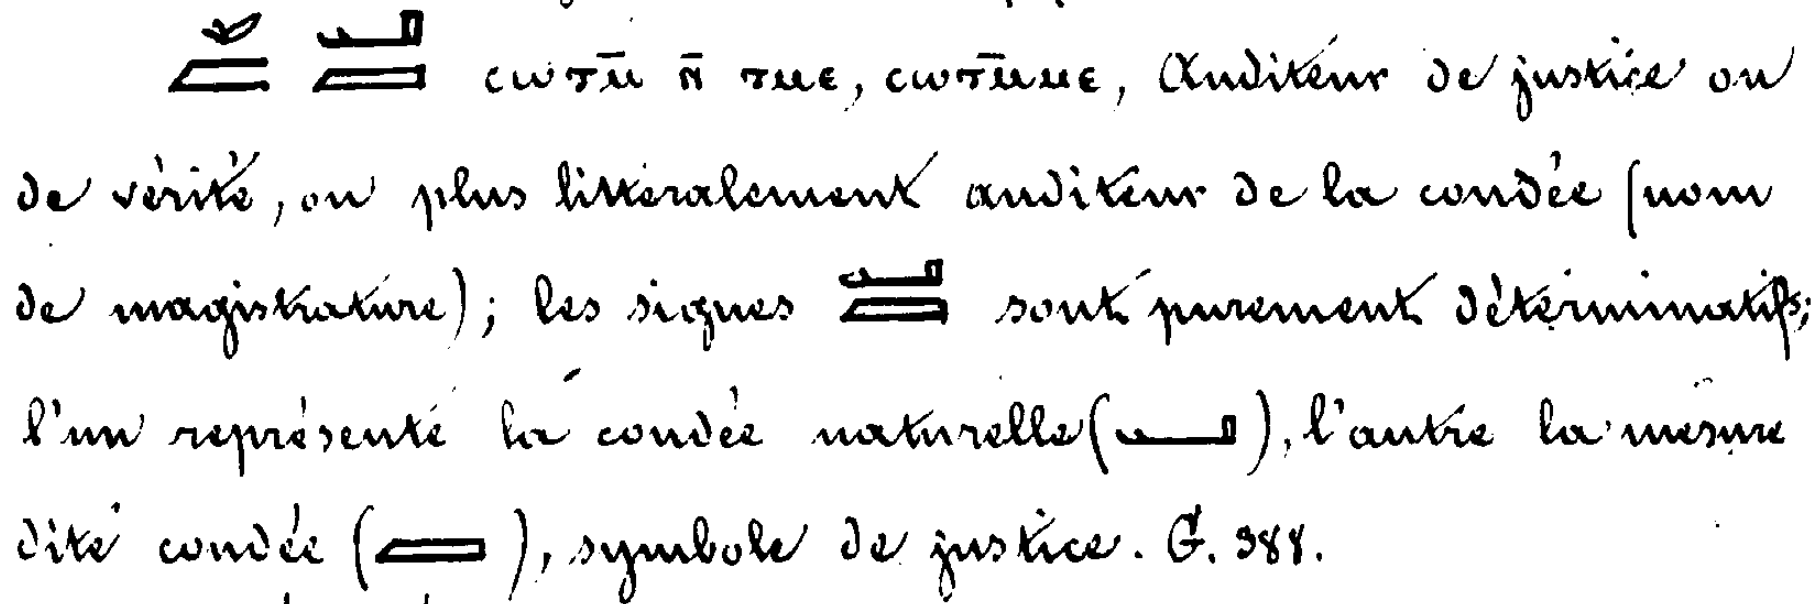 ⲥⲱⲧⲙ̄ ⲛ̄ ⲧⲙⲉ, ⲥⲱⲧⲙ̄ⲙⲉ, Auditeur de justice ou
de vérité, ou plus littéralement auditeur de la coudée (nom
de magistrature); les signes sont purement déterminatifs;
l'un représente la coudée naturelle (𓂝), l'autre la mesure
dite coudée (𓐙), symbole de justice. G. 388.